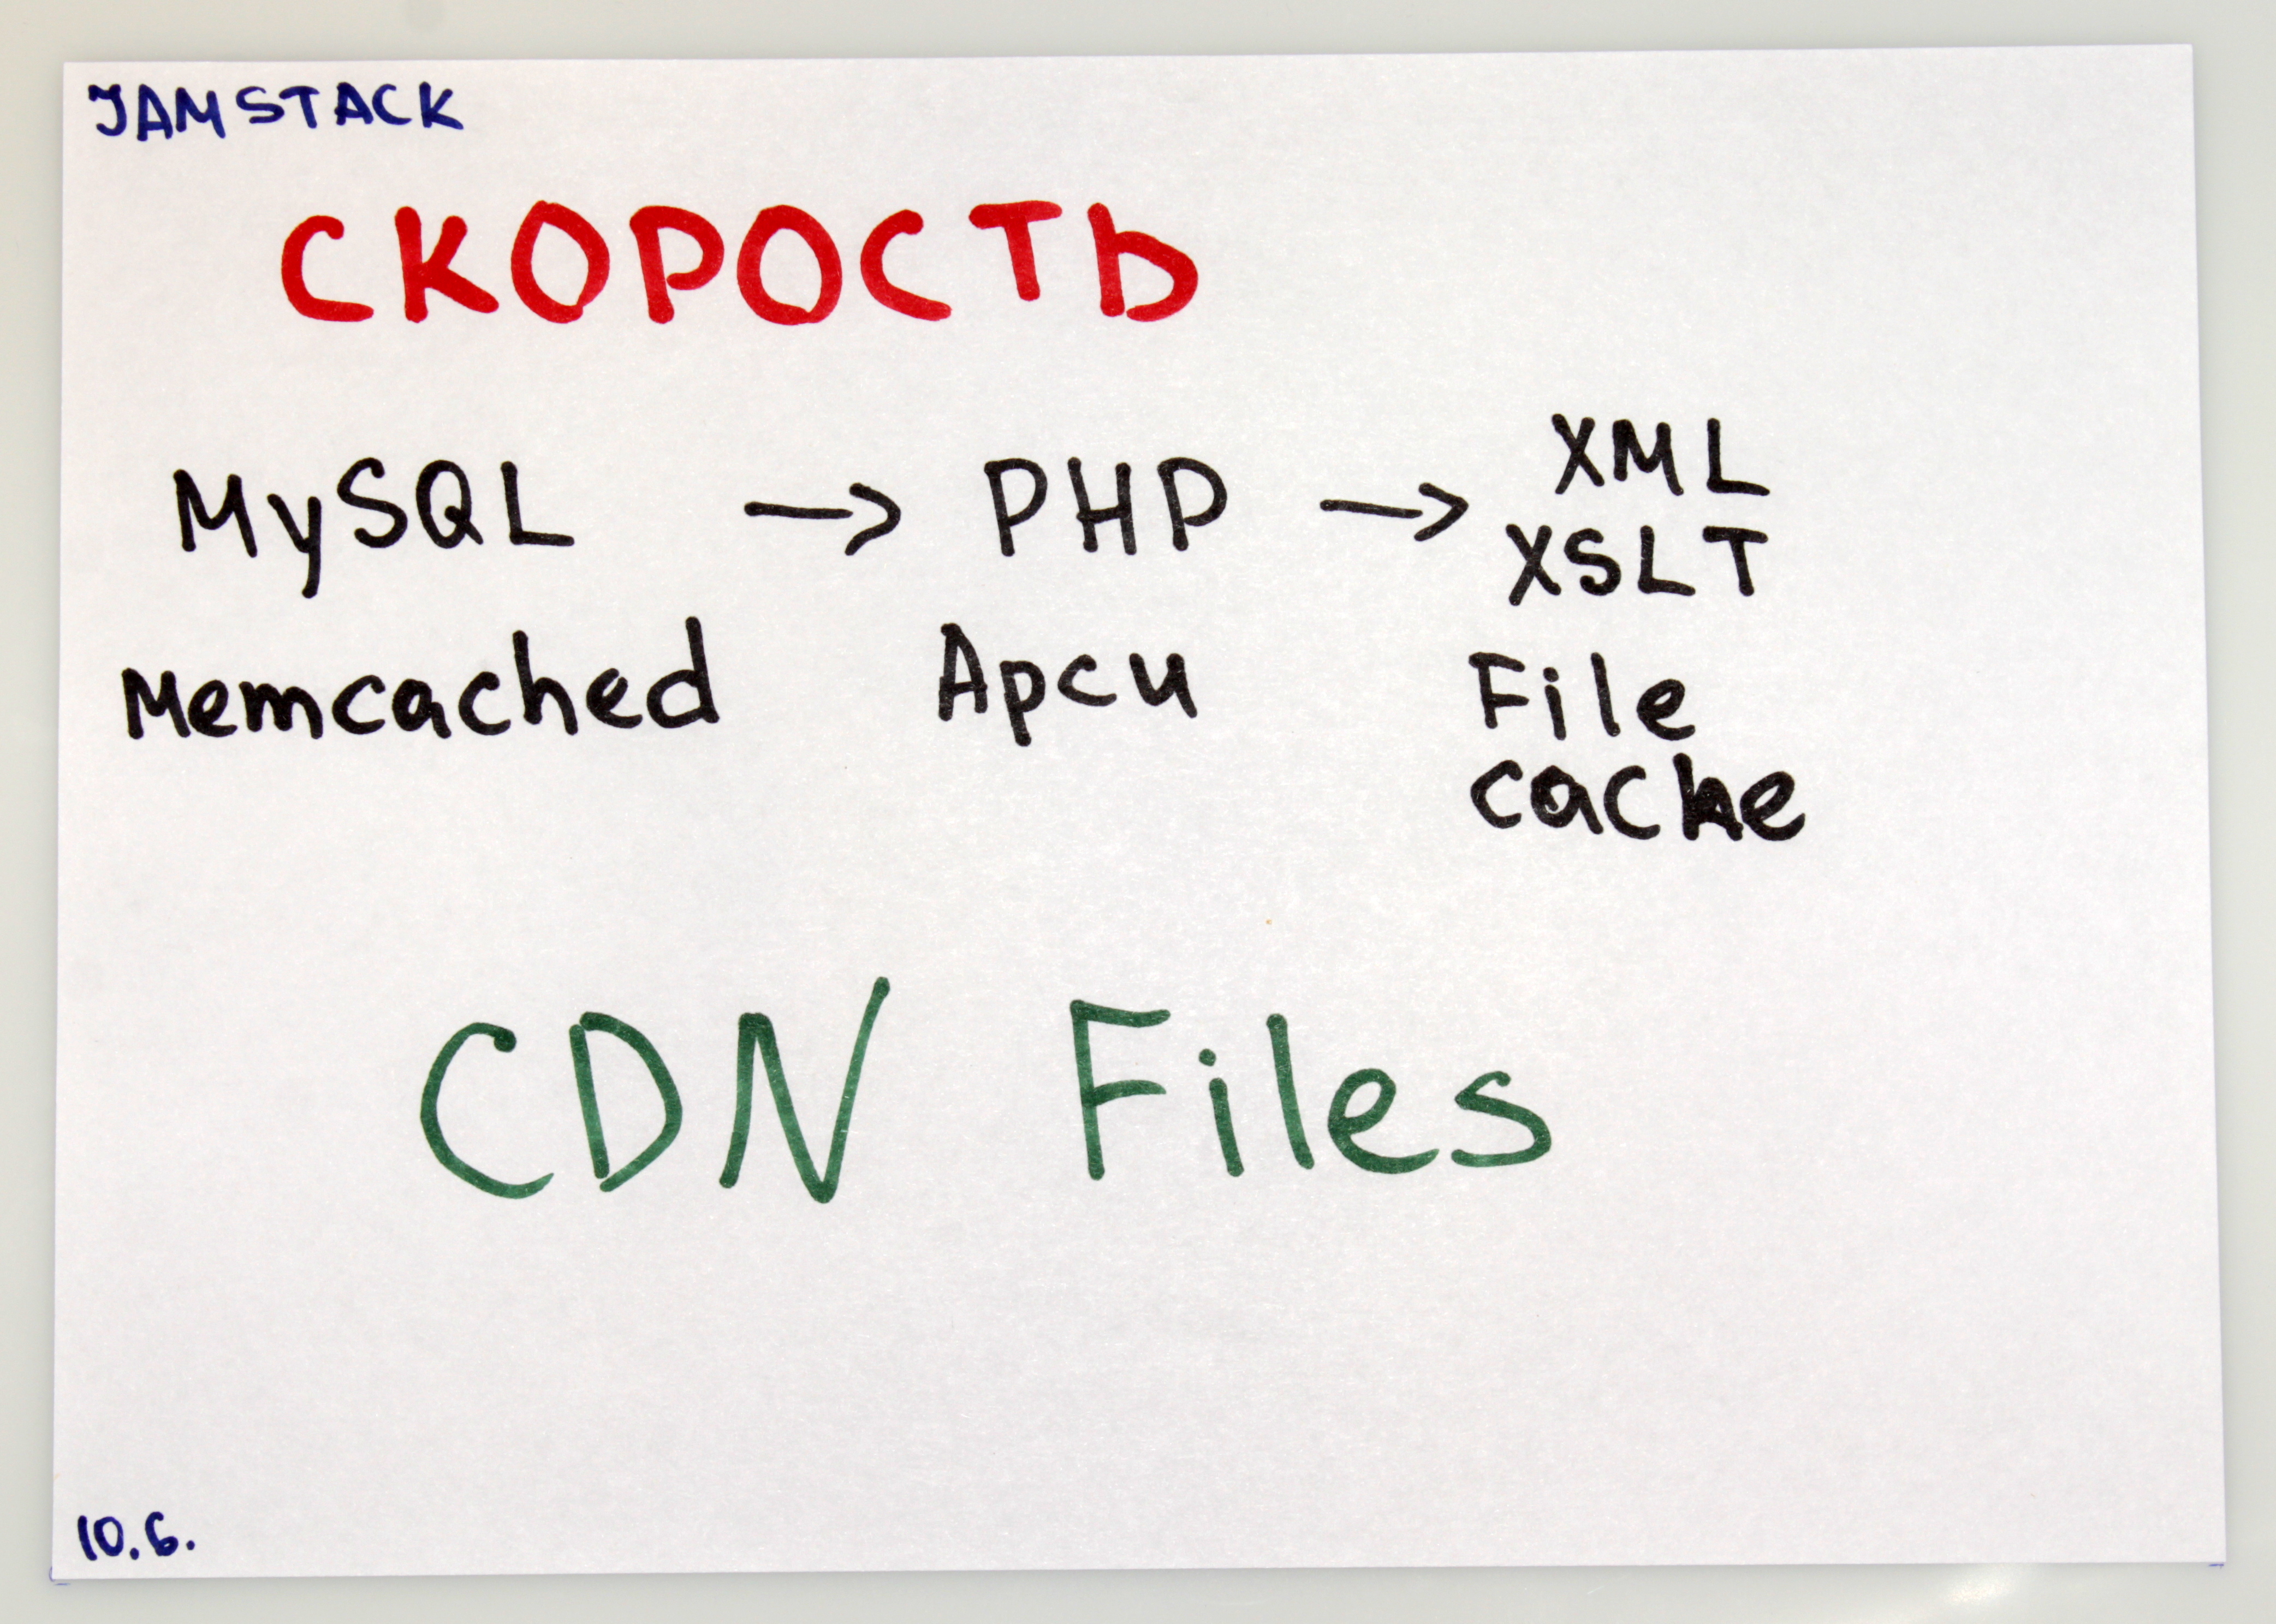 JAMSTACK
СКОРОСТЬ
MySQL → PHP → XML
XSLT
Memcached Apcu File
cache
CDN Files
10.6.